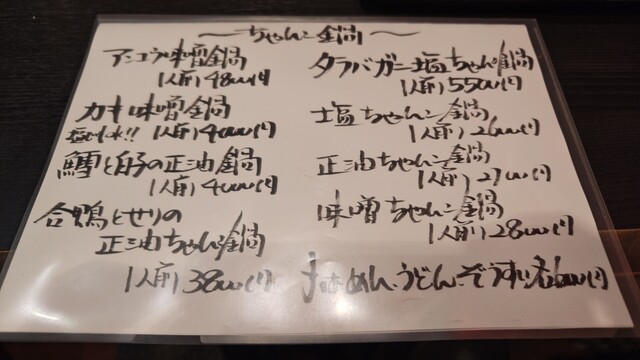 〜ちゃんこ鍋〜
アンコウ味噌鍋
1人前 4800円
カキ味噌鍋
塩もok!! 1人前 4000円
鱈と白子の正油鍋
1人前 4000円
合鴨とせりの
正油ちゃんこ鍋
1人前 3800円
タラバガニ塩ちゃんこ鍋
1人前 5500円
塩ちゃんこ鍋
1人前 2600円
正油ちゃんこ鍋
1人前 2700円
味噌ちゃんこ鍋
1人前 2800円
うどん、ぞうすい 各600円